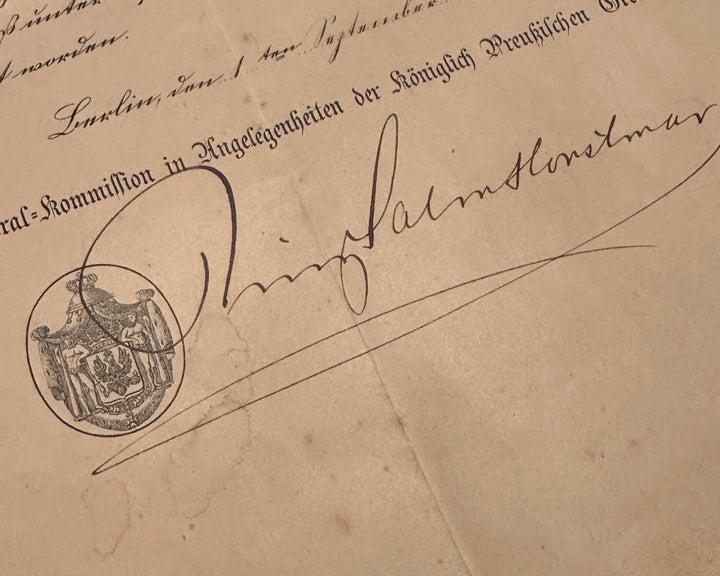 unter
worden.
Berlin, den 1ten September
ral=Kommission in Angelegenheiten der Königlich Preußischen
Prinz Salm Horstmar